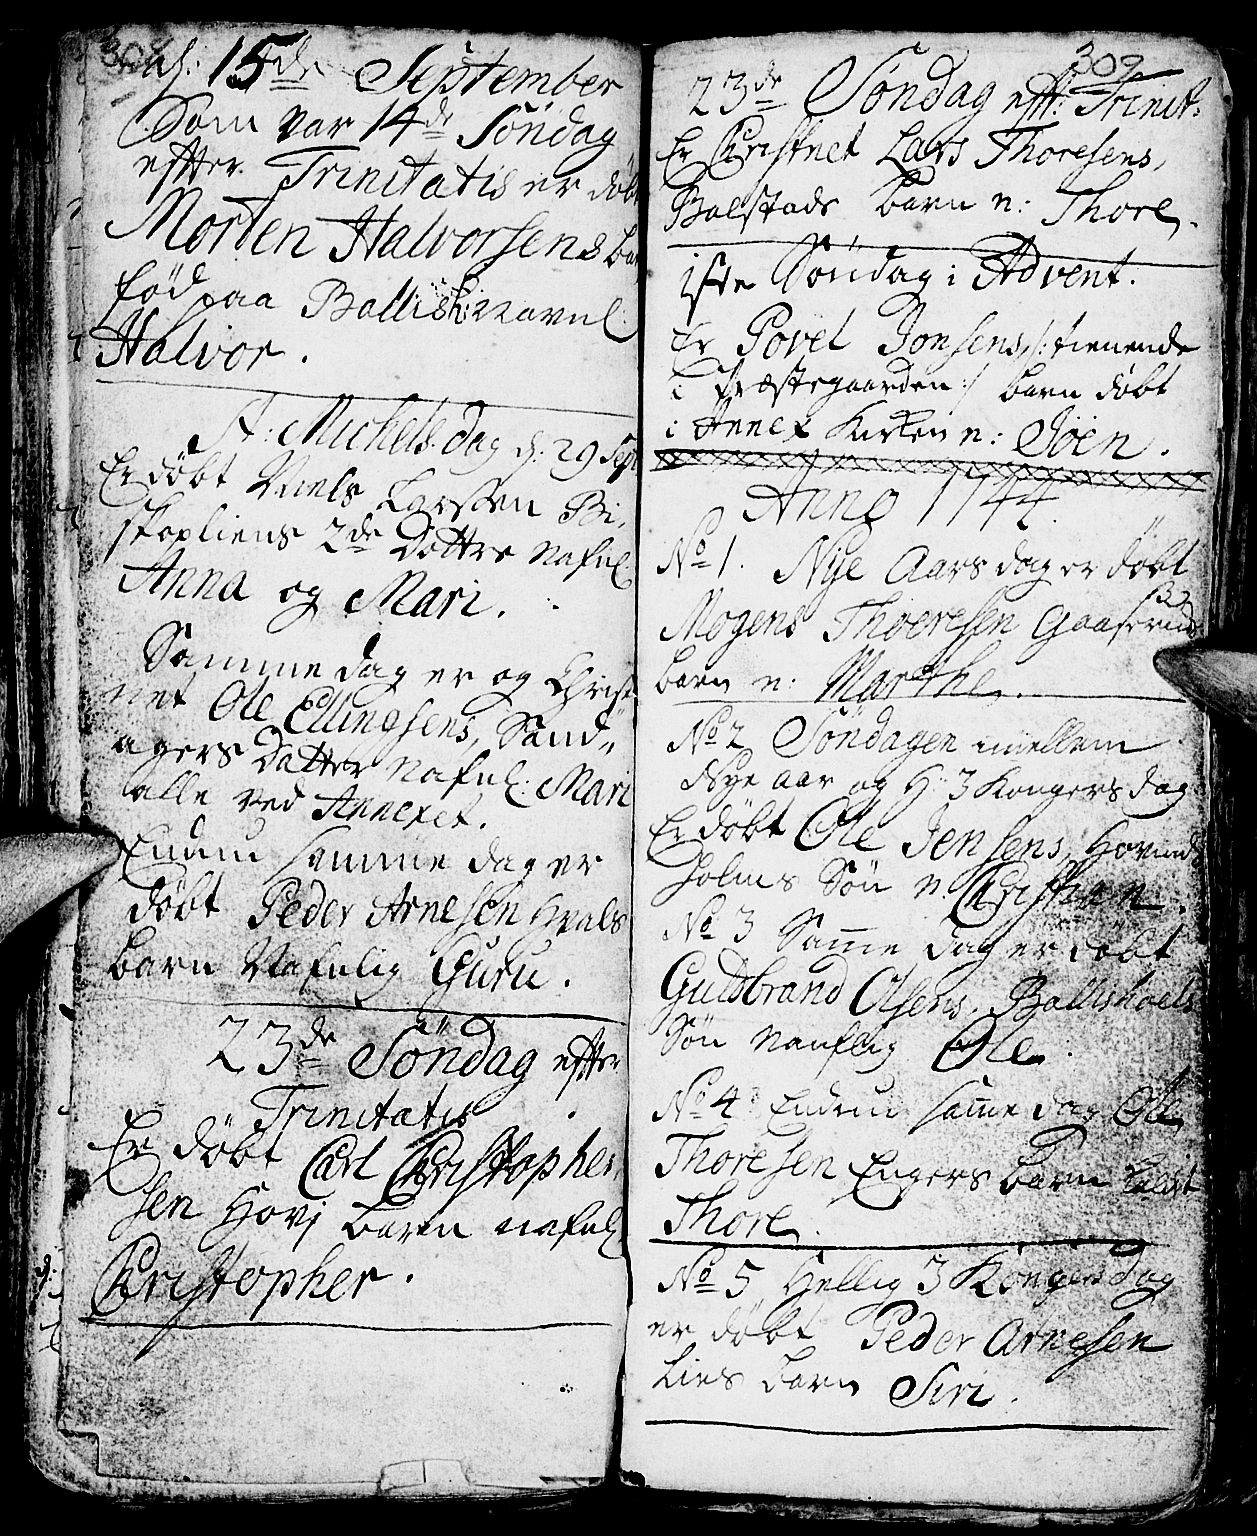 308
d: 15de September
Som var 14de Söndag
effter Trinitatis er döbt
Morten Halvorsens ba
fød paa Ballish: navnl:
Halvor.
St: Michels dag d: 29 Sept
Er döbt Niels Larssen Bi-
skopliens 2de Dottre nafnl
Anna og Mari.
Samme dag er og Christ
net Ole Ellingsens, Sand-
agers Datter nafnl: Mari
alle ved Annexet.
Endnu samme dag er
döbt Peder Arnesen Hvals
barn Nafnlig Guru.
23de Söndag effter
Trinitatis
Er döbt Carl Christopher
sen Hovj barn nafnl
Christopher.
309
23de Söndag eff: Trinit:
Er Christnet Lars Thoresens,
Balstads barn n: Thore.
1ste Söndag i Advent.
Er Povel Jonsens /: tienende
i Præstegaarden :/ barn döbt
i Annex Kirken n: Joen.
Anno 1744.
No 1. Nye Aars dag er döbt
Mogens Thoeresen Gaaserud
barn n: Marthe.
No 2 Söndagen mellem
Nye aar og H: 3 Kongers dag
Er döbt Ole Jensens, Hovind
holms Sön n: Christian.
No 3 Same dag er döbt
Guldbrand Olsens. Ballishoels
Sön navnlig Ole.
No 4: Endnu same dag Ole
Thoresen Engers barn kaldt
Thore.
No 5 Hellig 3 Kongers dag
er döbt Peder Arnesen
Lies barn Siri.